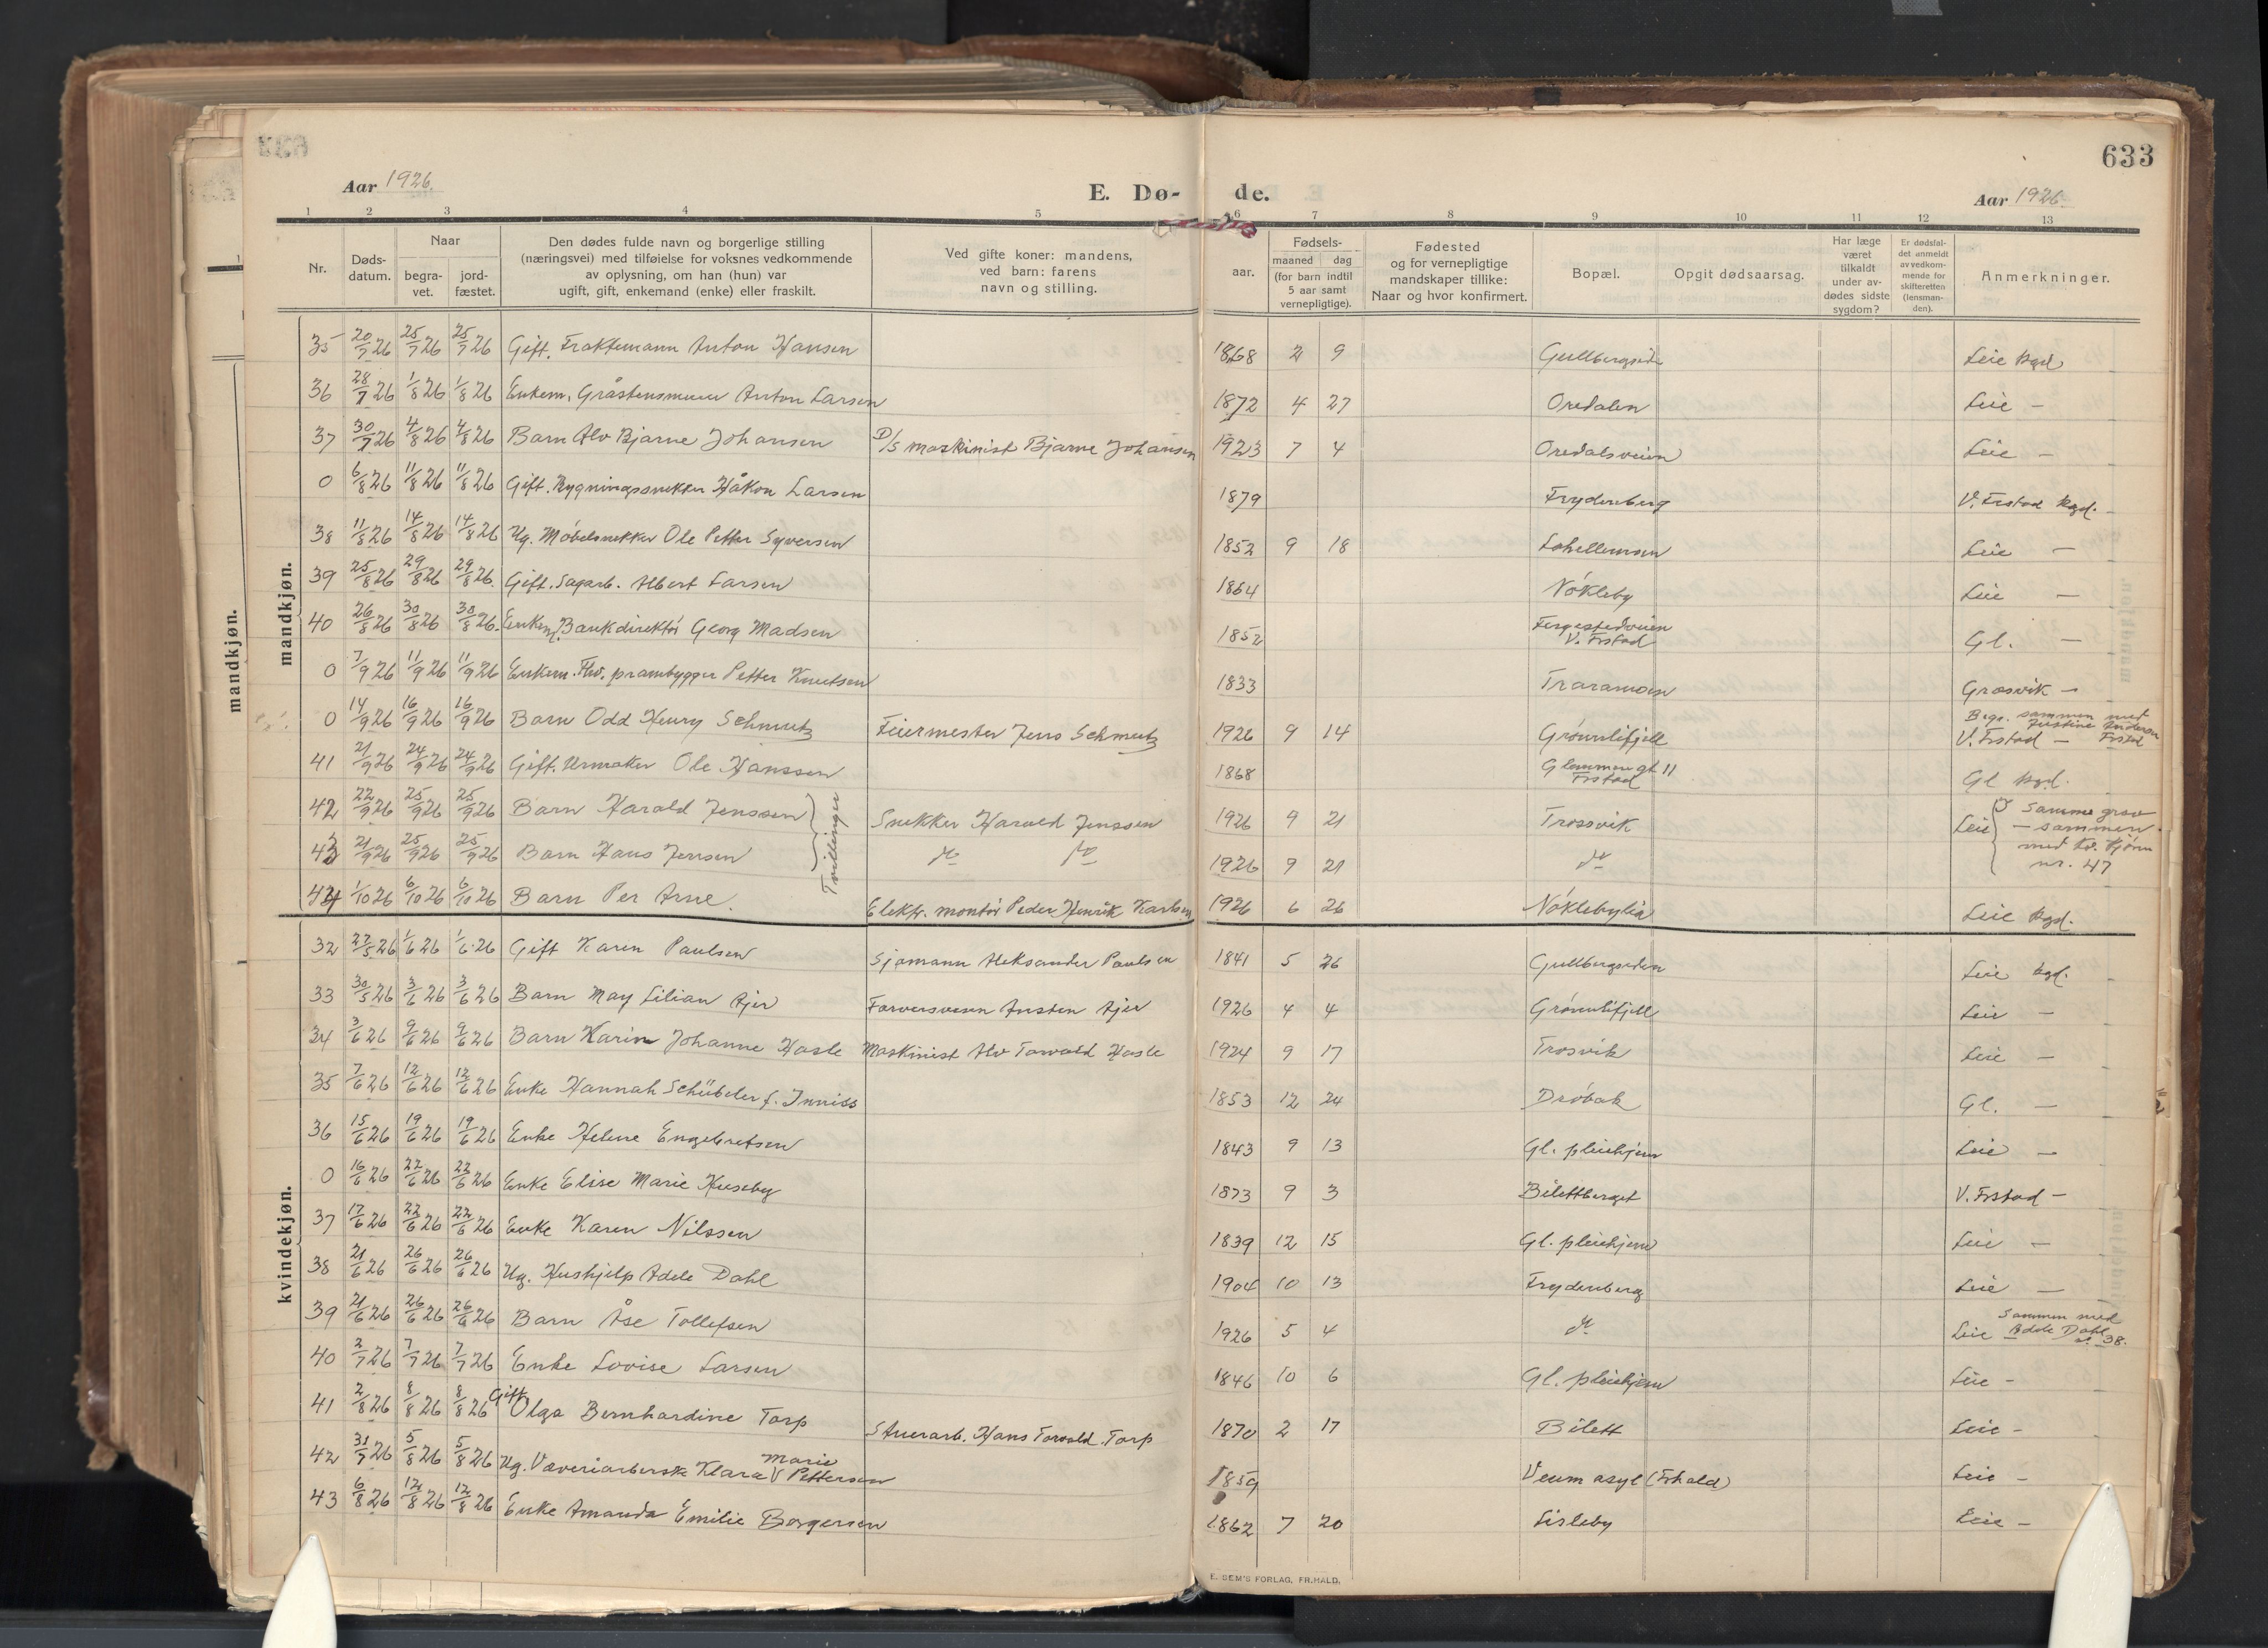 633
Aar 1926.
E. Dø- de.
Aar 1926.
1 2 3 4 5 6 7 8 9 10 11 12 13
Nr.
Døds-
datum.
Naar
begra-
vet.
jord-
fæstet.
Den dødes fulde navn og borgerlige stilling
(næringsvei) med tilføielse for voksnes vedkommende
av oplysning, om han (hun) var
ugift, gift, enkemand (enke) eller fraskilt.
Ved gifte koner: mandens,
ved barn: farens
navn og stilling.
aar.
Fødsels-
maaned dag
(for barn indtil
5 aar samt
vernepligtige).
Fødested
og for vernepligtige
mandskaper tillike:
Naar og hvor konfirmert.
Bopæl.
Opgit dødsaarsag.
Har læge
været
tilkaldt
under av-
dødes sidste
sygdom?
Er dødsfal-
det anmeldt
av vedkom-
mende for
skifteretten
(lensman-
den).
Anmerkninger.
mandkjøn.
mandkjøn.
35 20/7 26 25/7 26 25/7 26 Gift. Fraktemann Anton Hansen 1868 2 9 Gullbergsida Leie kgd
36 28/7 26 1/8 26 1/8 26 Enkem. Gråstensmurer Anton Larsen 1872 4 27 Oredalen Leie —
37 30/7 26 4/8 26 4/8 26 Barn Alv Bjarne Johansen D/S maskinist Bjarne Johansen 1923 7 4 Oredalsveien Leie —
0 6/8 26 11/8 26 11/8 26 Gift. Bygningssnekker Håkon Larsen 1879 Frydenberg V. Frstad kgd.
38 11/8 26 14/8 26 14/8 26 Ug. Møbelsnekker Ole Petter Syversen 1852 9 18 Lahellemoen Leie —
39 25/8 26 29/8 26 29/8 26. Gift. Sagarb. Albert Larsen 1864 Nøkleby Leie —
40 26/8 26 30/8 26 30/8 26. Enkem. Bankdirektør Georg Madsen 1852 Fergestedveien V. Frstad Gl. —
0 7/9 26 11/9 26 11/9 26 Enkem. Fhv. prambygger Petter Knutsen 1833 Traramoen Gresvik —
0 14/9 26 16/9 26 16/9 26 Barn Odd Henry Schmutz Feiermester Jens Schmutz 1926 9 14 Grønnlifjell Begr. sammen med Justine Anderson Frstad V. Frstad —
41 21/9 26 24/9 26 24/9 26 Gift. Urmaker Ole Hanssen 1868 Glemmengt. 11 Frstad Gl kgd.
42 22/9 26 25/9 26 25/9 26 Barn Harald Jenssen Tvillinger Snekker Harald Jenssen 1926 9 21 Trossvik Leie Samme grav
43 21/9 26 25/9 26 25/9 26 Barn Hans Jenssen do do 1926 9 21 do — sammen med Kv. kjønn nr. 47
44 1/10 26 6/10 26 6/10 26 Barn Per Arne. Elektr. montør Peder Henrik Karlsen 1926 6 26 Nøklebylia Leie kgd.
kvindekjøn.
32 27/5 26 1/6 26 1/6 26 Gift Karen Paulsen Sjømann Aleksander Paulsen 1841 5 26 Gullbergsiden Leie kgd.
33 30/5 26 3/6 26 3/6 26 Barn May Lilian Ajer Farversvenn Austen Ajer 1926 4 4 Grønnlifjell Leie —
34 3/6 26 9/6 26 9/6 26 Barn Karin Johanne Hasle Maskinist Alv Torvald Hasle 1924 9 17 Trosvik Leie —
35 7/6 26 12/6 26 12/6 26 Enke Hannah Schübeler f. Inniss 1853 12 24 Drøbak Gl. —
36 15/6 26 19/6 26 19/6 26 Enke Helene Engebretsen 1843 9 13 Gl. pleiehjem Leie —
0 16/6 26 22/6 26 22/6 26 Enke Elise Marie Huseby 1873 9 3 Bilettberget V. Frstad —
37 17/6 26 22/6 26 22/6 26 Enke Karen Nilssen 1839 12 15 Gl. pleiehjem Leie —
38 21/6 26 26/6 26 26/6 26 Ug. Hushjelp Adele Dahl 1904 10 13 Frydenberg Leie —
39 21/6 26 26/6 26 26/6 26 Barn Åse Tollefsen 1926 5 4 do Leie Sammen med Adele Dahl nr. 38.
40 2/7 26 7/7 26 7/7 26 Enke Lovise Larsen 1846 10 6 Gl. pleiehjem Leie —
41 2/8 26 8/8 26 8/8 26 Gift Olga Bernhardine Torp Stuerarb. Hans Torvald Torp 1870 2 17 Bilett Leie —
42 31/7 26 5/8 26 5/8 26 Ug. Væveriarberske Klara Marie Pettersen 1859 Veum asyl (Frhald) Leie —
43 6/8 26 12/8 26 12/8 26 Enke Amanda Emilie Borgersen 1862 7 20 Lisleby Leie —
E. SEM'S FORLAG, FR.HALD.